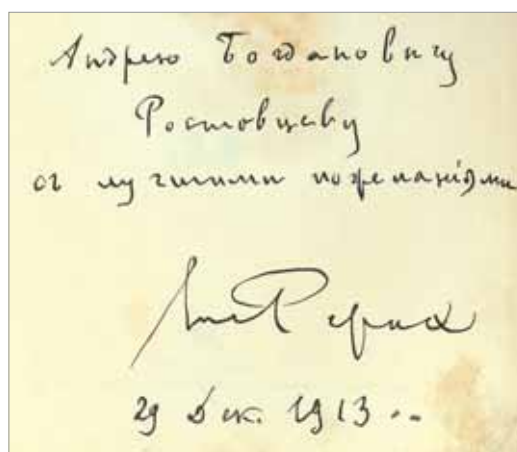 Андрею Богдановичу
Ростовцеву
съ лучшими пожеланіями
Рерих
29 Дек. 1913..